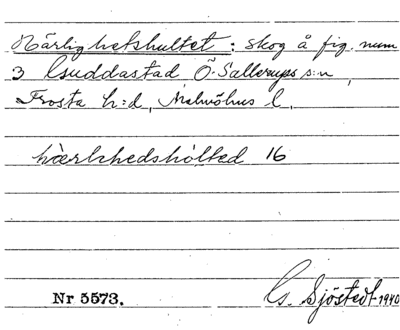 Kärlighetshultet: Skog å fig. num
3 Guddastad Ö. Sallerups s:n,
Frosta h:d, Malmöhus l.
kàrlıhedshòlted 16
Nr 5573. G. Sjöstedt 1940